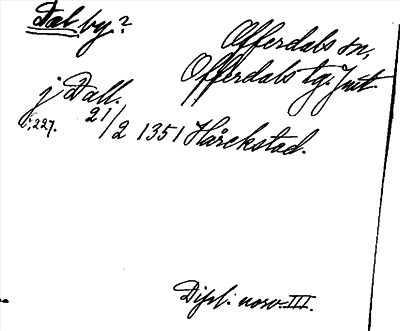 Dal by?
Offerdals sn,
Offerdals tg. Jmt.
j Dall.
s. 227. 21/2 1351 Hårckstad.
Dipl. norv. III.